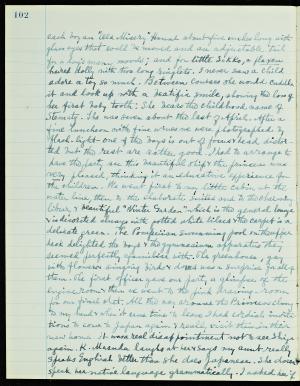 102
each boy an "Ella Misery" Hound about five inches long with
glass eyes that could be moved and an adjustable tail
for a many moods; and for little Sikko, a flaxen
haired dolly with two long ringlets. I never saw a child
adore a toy so much. Between courses she would cuddle
it and look up with a beatific smile, showing the loss of
her first baby tooth. She bears the childhood name of
She was seven about the last of April. After a
fine luncheon with fine wines we were photographed by
flash-light one of the boys is out of focus head, distor-
ted but the rest are rather good. I had to arrange to
have the party see this beautiful ship; the princess was
very pleased, thinking it an educative experience for
the children. We went first to my little cabin, at the
water line, then to the elaborate suites and to the observatory
library & beautiful "Winter Garden" which is the general lounge
is decorated always with potted plants & lilies & the carpet is a
delicate green. The Pompeiian swimming pool on the upper
deck delighted the boys & the gymnasium apparatus they
seemed perfectly familiar with. The greenhouse, gay
with flowers & singing birds & was a surprise for all of
them. The first officer gave our party a glimpse of the
engine room & then we went to the pink drawing room
for our final chat. All the way around the Princess clung
to my hand & when it was time to leave I had cordial invita-
tions to come to Japan again & really visit them in their
new home. It was real disappointment not to see Shige
again. K. Masuda laughs at us & says my aunt really
speaks English better than she does Japanese. She
speak her native language grammatically. I asked her if